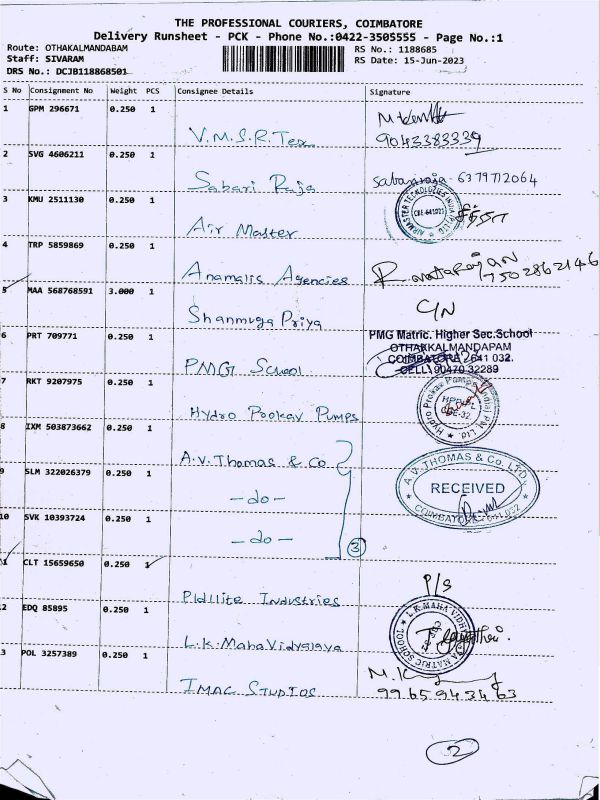 THE PROFESSIONAL COURIERS, COIMBATORE
Delivery Runsheet - PCK - Phone No.:0422-3505555 - Page No.:1
Route: OTHAKALMANDABAM RS No.: 1188685
Staff: SIVARAM RS Date: 15-Jun-2023
DRS No.: DCJB118868501
S No Consignment No Weight PCS Consignee Details Signature
1 GPM 296671 0.250 1
V.M.S.R.Tex 9043383339
2 SVG 4606211 0.250 1
Sabari Raja sabariraja - 6379712064
3 KMU 2511130 0.250 1
Air Master
4 TRP 5859869 0.250 1
Anamalis Agencies 7502862146
5 MAA 568768591 3.000 1
Shanmuga Priya C/N
6 PRT 709771 0.250 1
PMG School
PMG Matric. Higher Sec.School
OTHAKKALMANDAPAM
COIMBATORE - 641 032.
CELL: 90470 32289
7 RKT 9207975 0.250 1
Hydro Pookav Pumps
8 IXM 503873662 0.250 1
A.V. Thomas & Co
9 SLM 322026379 0.250 1
-do-
A.V. THOMAS & CO. LTD.
RECEIVED
COIMBATORE - 641 032
10 SVK 10393724 0.250 1
-do- 3
1 CLT 15659650 0.250 1
Pldilite Industries P/S
2 EDQ 85895 0.250 1
L.K. MahaVidyalaya
3 POL 3257389 0.250 1
IMAG STUDIOS 9965943463
2